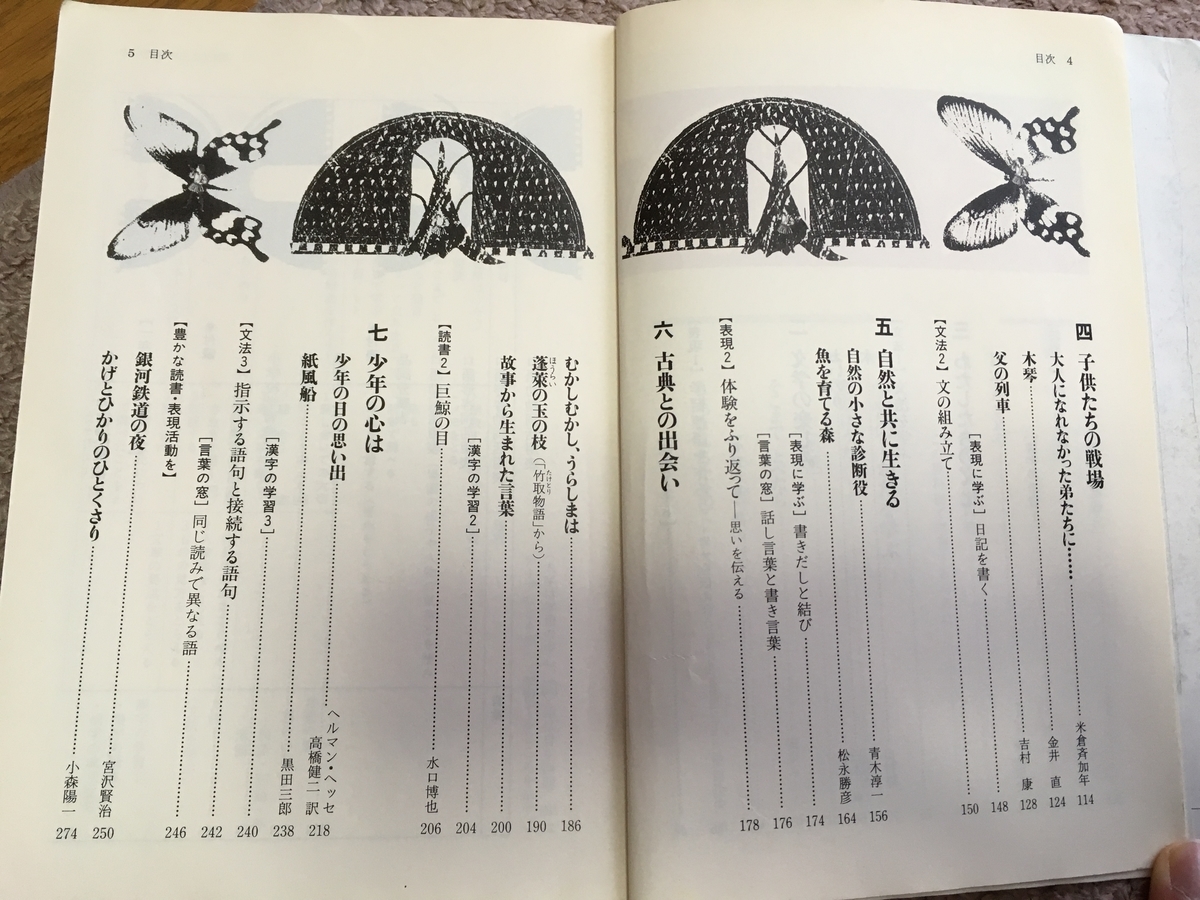 目次 4
四 子供たちの戦場
大人になれなかった弟たちに……米倉斉加年 114
木琴 金井 直 124
父の列車 吉村 康 128
［表現に学ぶ］日記を書く 148
【文法2】文の組み立て 150
五 自然と共に生きる
自然の小さな診断役 青木淳一 156
魚を育てる森 松永勝彦 164
［表現に学ぶ］書きだしと結び 174
［言葉の窓］話し言葉と書き言葉 176
【表現2】体験をふり返って―思いを伝える 178
六 古典との出会い
5 目次
むかしむかし、うらしまは 186
蓬萊の玉の枝（「竹取物語」から） 190
ほうらい
たけとり
故事から生まれた言葉 200
［漢字の学習2］ 204
【読書2】巨鯨の目 水口博也 206
七 少年の心は
少年の日の思い出 ヘルマン・ヘッセ 高橋健二 訳 218
紙風船 黒田三郎 238
［漢字の学習3］ 240
【文法3】指示する語句と接続する語句 242
［言葉の窓］同じ読みで異なる語 246
【豊かな読書・表現活動を】
銀河鉄道の夜 宮沢賢治 250
かげとひかりのひとくさり 小森陽一 274